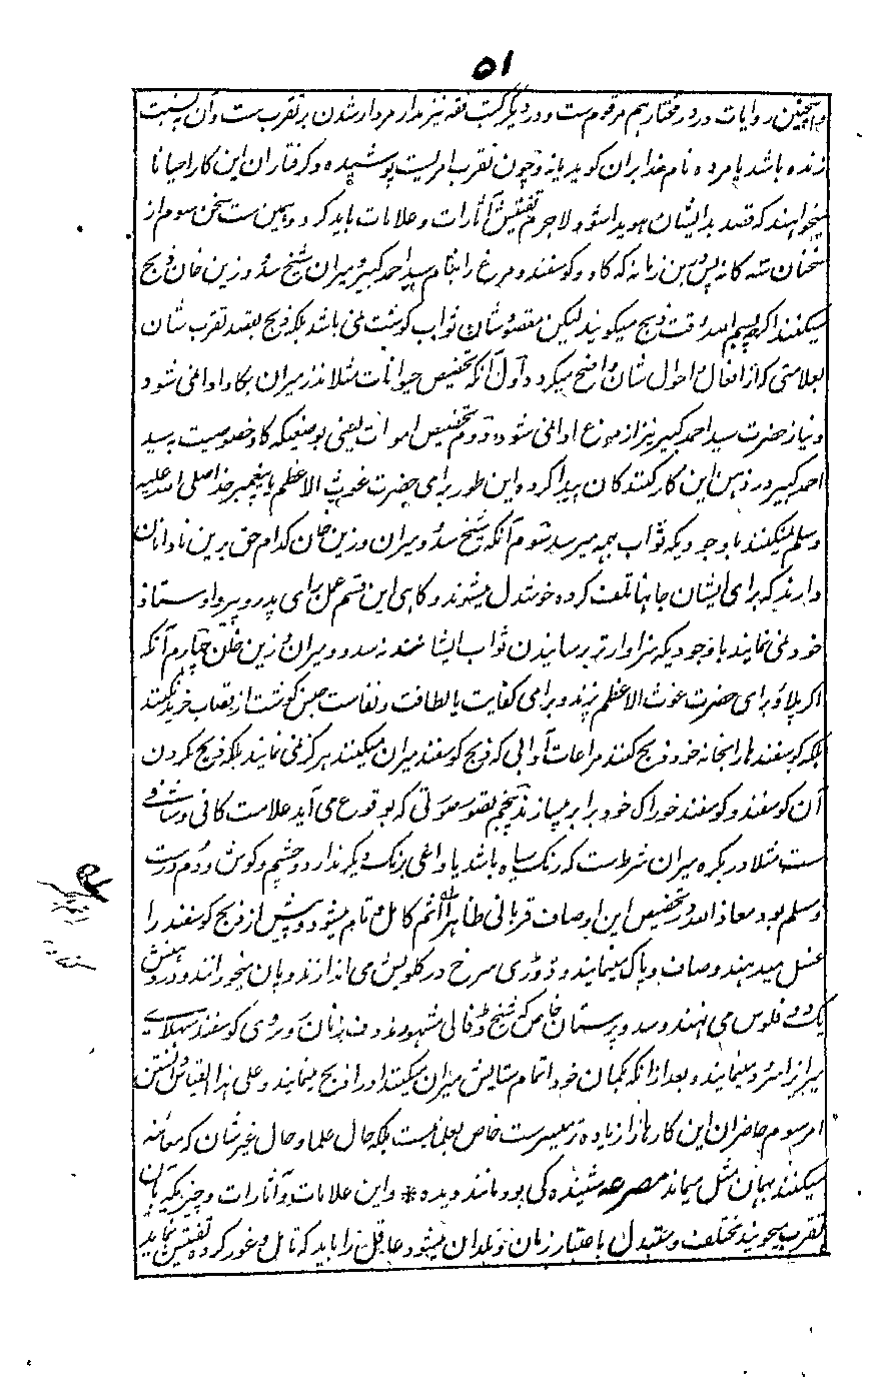 ۵۱
همچنین روایات در در مختار هم مرقوم ست و در دیگر کتب فقه نیز مدار مردار شدن بر تقرب ست و آن به نسبت
زنده باشد یا مرده نام خدا بران گوید یا نه و چون تقرب امریست پوشیده و گرفتاران این کار احیانا
میخواهند که قصد بد ایشان هویدا شود لاجرم تفتیش آثارات و علامات باید کرد و همین ست سخن سوم از
سخنان سه گانه پس درین زمانه که گاو و گوسفند و مرغ را بنام سید احمد کبیر و میران شیخ سدو و زین خان ذبح
میکنند اگرچه بسم الله وقت ذبح میگویند لیکن مقصود شان ثواب گوشت نمی باشد بلکه ذبح بقصد تقرب شان
بعلامتی که از افعال و احوال شان واضح میگردد اول آنکه تخصیص حیوانات مثلا نذر میران بگاو ادا نمی شود
و نیاز حضرت سید احمد کبیر نیز از مرغ ادا نمی شود دوم تخصیص اموات یعنی بوضعیکه گاو خصوصیت به سید
احمد کبیر در ذهن این کار کنندگان پیدا کرده و این طور برای حضرت غوث الاعظم یا پیغمبر خدا صلی الله علیه
وسلم نمیکنند با وجودیکه ثواب بهمه میرسد سوم آنکه شیخ سدو و میران و زین خان کدام حق برین نادانان
دارند که برای ایشان جانها تلف کرده خوشدل میشوند و گاهی این قسم عمل برای پدر و پیر و استاذ
خود نمی نمایند با وجودیکه سزاوارتر برسانیدن ثواب ایشانند نه سدو و میران و زین خان چهارم آنکه
اگر پلاو برای حضرت غوث الاعظم پزند و برای کفایت یا لطافت و نفاست جنس گوشت از قصاب خرید میکنند
بلکه گوسفند را بخانه خود ذبح کنند مراعات آدابی که ذبح گوسفند میران میکنند هرگز نمی نمایند بلکه ذبح نکردن
آن گوسفند و گوسفند خوراک خود برابر میسازند پنجم بقصور صورتی که بوقوع می آید علامت کافی و شافی
ست مثلا در بکره میران شرط ست که رنگ سیاه باشد یا داغی برنگ دیگر ندارد و چشم و گوش و دم درست
و مسلم بود معاذ الله در تخصیص این اوصاف قربانی طاهرا لله اتم کامل و تام میشود و پیش از ذبح گوسفند را
غسل میدهند و صاف و پاک مینمایند و ڈوری سرخ در گلویش می اندازند و پان میخورانند و در دهنش
یک دو فلوس می نهند و سدو پرستان خاص که شیخ ڈفالی مشهورند دف زنان و روی گوسفند
میران را سرود مینمایند و بعد ازانکه بگمان خود اتمام ستایش میران میکنند او را ذبح مینمایند و علی هذا القیاس دانستن
امر سوم حاضران این کارها را زیاده تر میسرست خاص بعلما نیست بلکه حال علما و حال غیر شان که معائنه
میکنند بهمان مثل میماند مصرعه شنیده کی بود مانند دیده * و این علامات و آثارات و چیزیکه بآن
تقرب میجویند مختلف و متبدل باعتبار زمان و بلدان میشود عاقل را باید که تامل و غور کرده تفتیش نماید